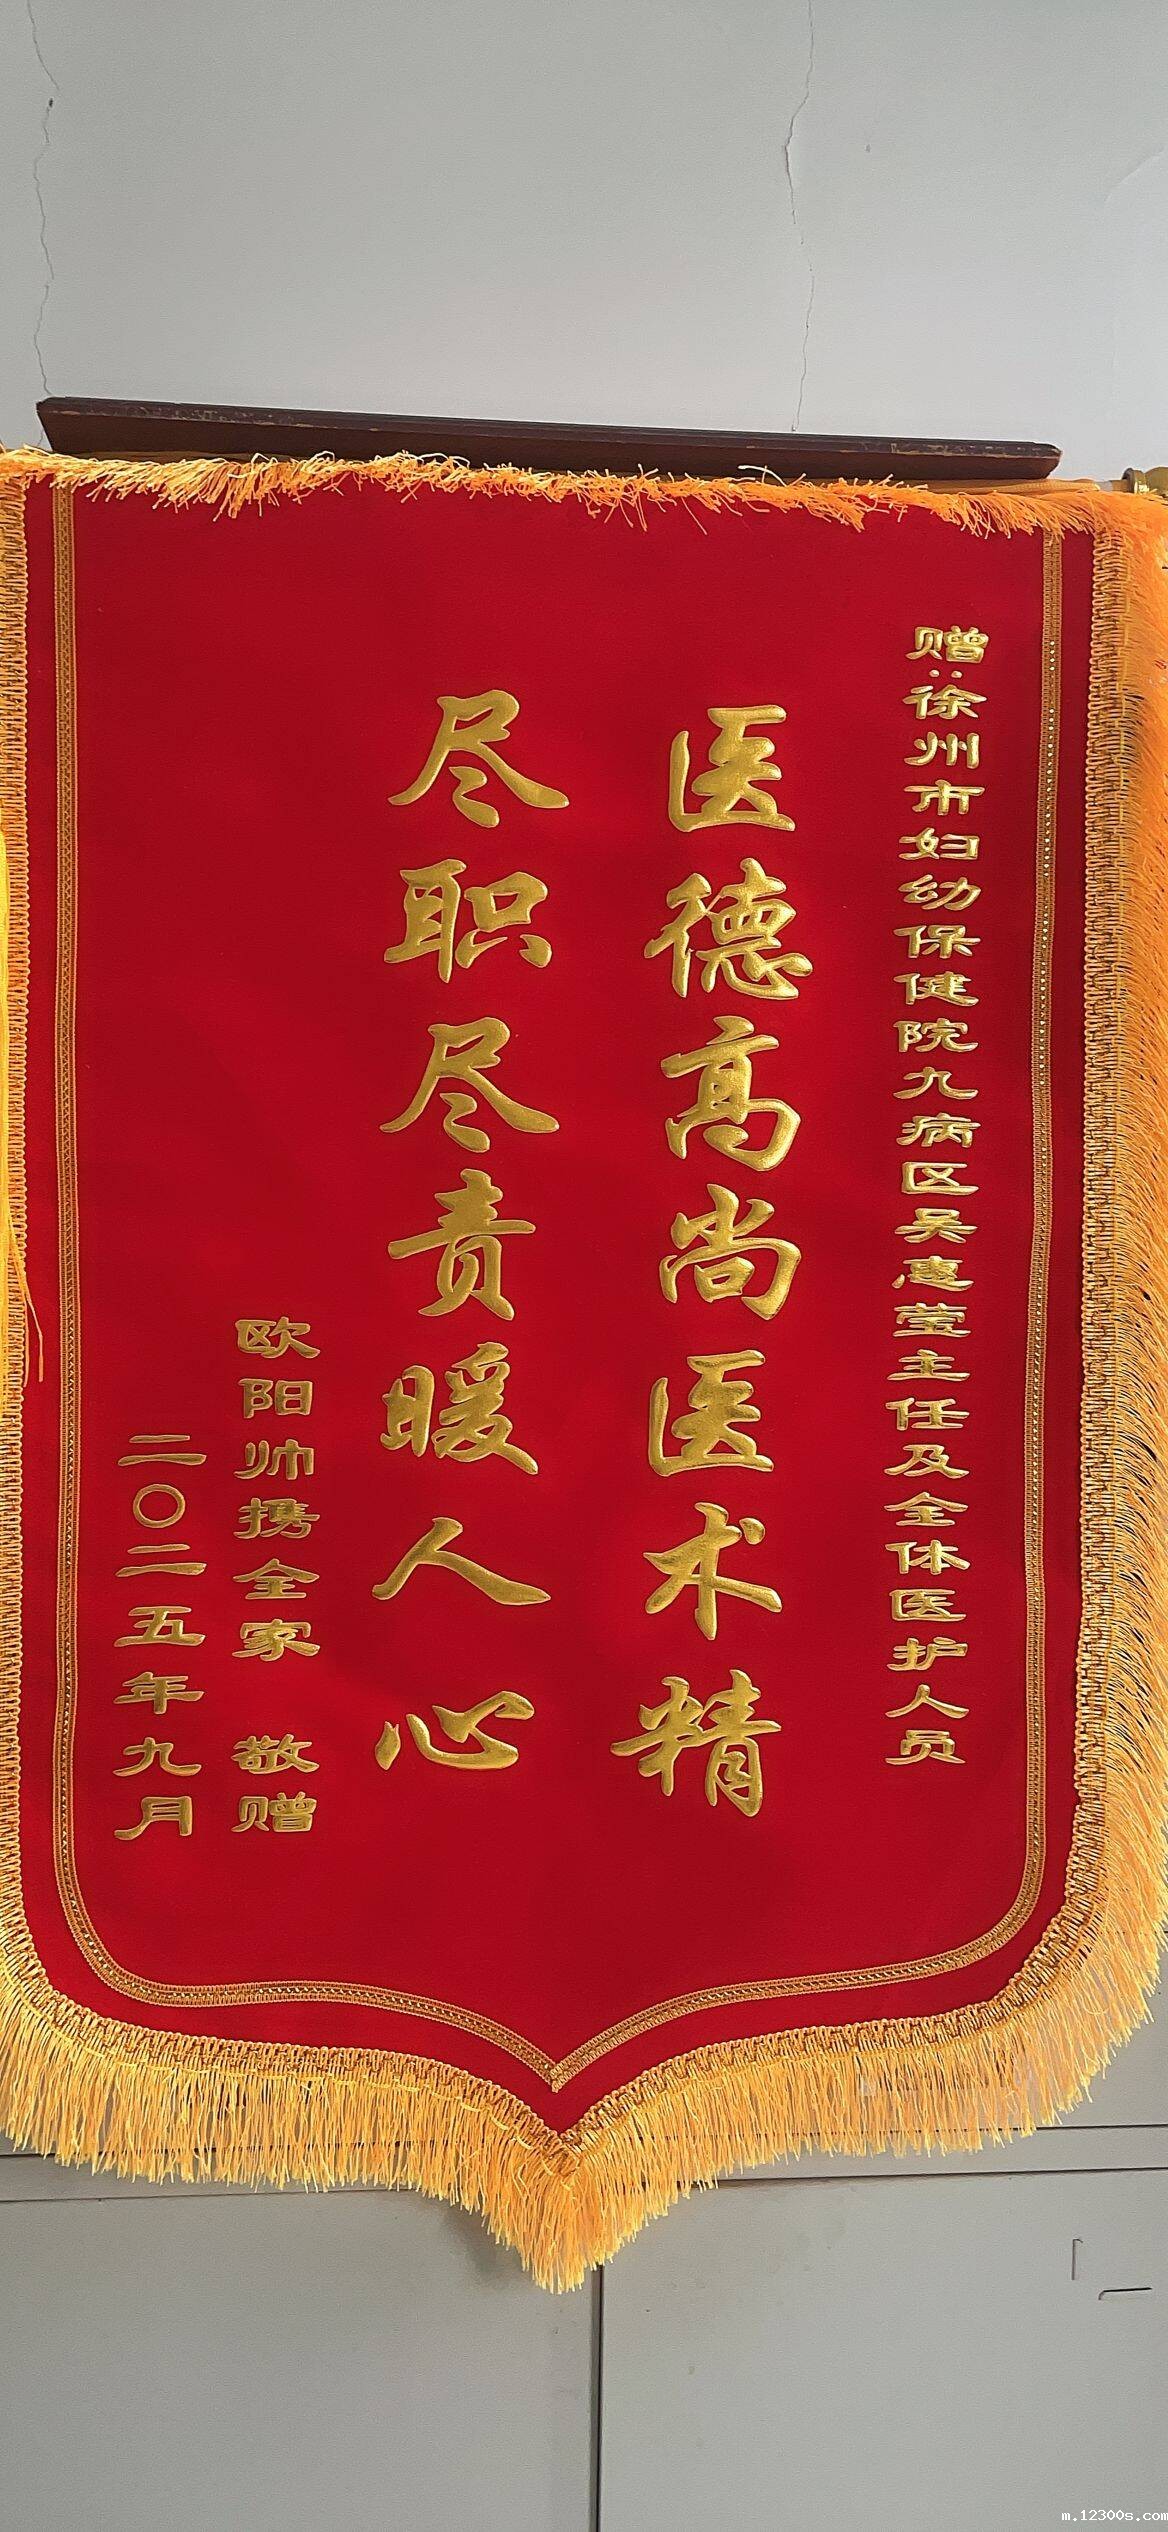 赠:徐州市妇幼保健院九病区吴惠莹主任及全体医护人员
医德高尚医术精
尽职尽责暖人心
欧阳帅携全家 敬赠
二〇二五年九月
m.12300s.com